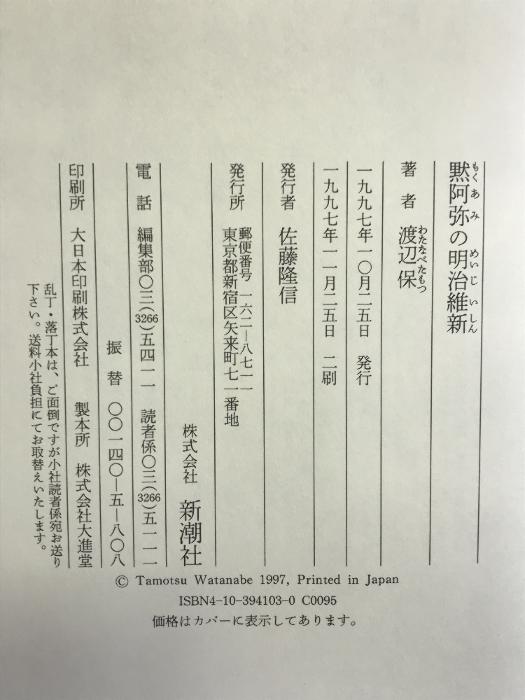 黙阿弥の明治維新
もくあみ めいじいしん
著者 渡辺保
わたなべたもつ
一九九七年一〇月二五日 発行
一九九七年一一月二五日 二刷
発行者 佐藤隆信
発行所 郵便番号 一六二―八七一一
東京都新宿区矢来町七一番地
株式会社 新潮社
電話 編集部〇三(3266)五四一一 読者係〇三(3266)五一一一
振替 〇〇一四〇―五―八〇八
印刷所 大日本印刷株式会社 製本所 株式会社大進堂
乱丁・落丁本は、ご面倒ですが小社読者係宛お送り
下さい。送料小社負担にてお取替えいたします。
© Tamotsu Watanabe 1997, Printed in Japan
ISBN4-10-394103-0 C0095
価格はカバーに表示してあります。